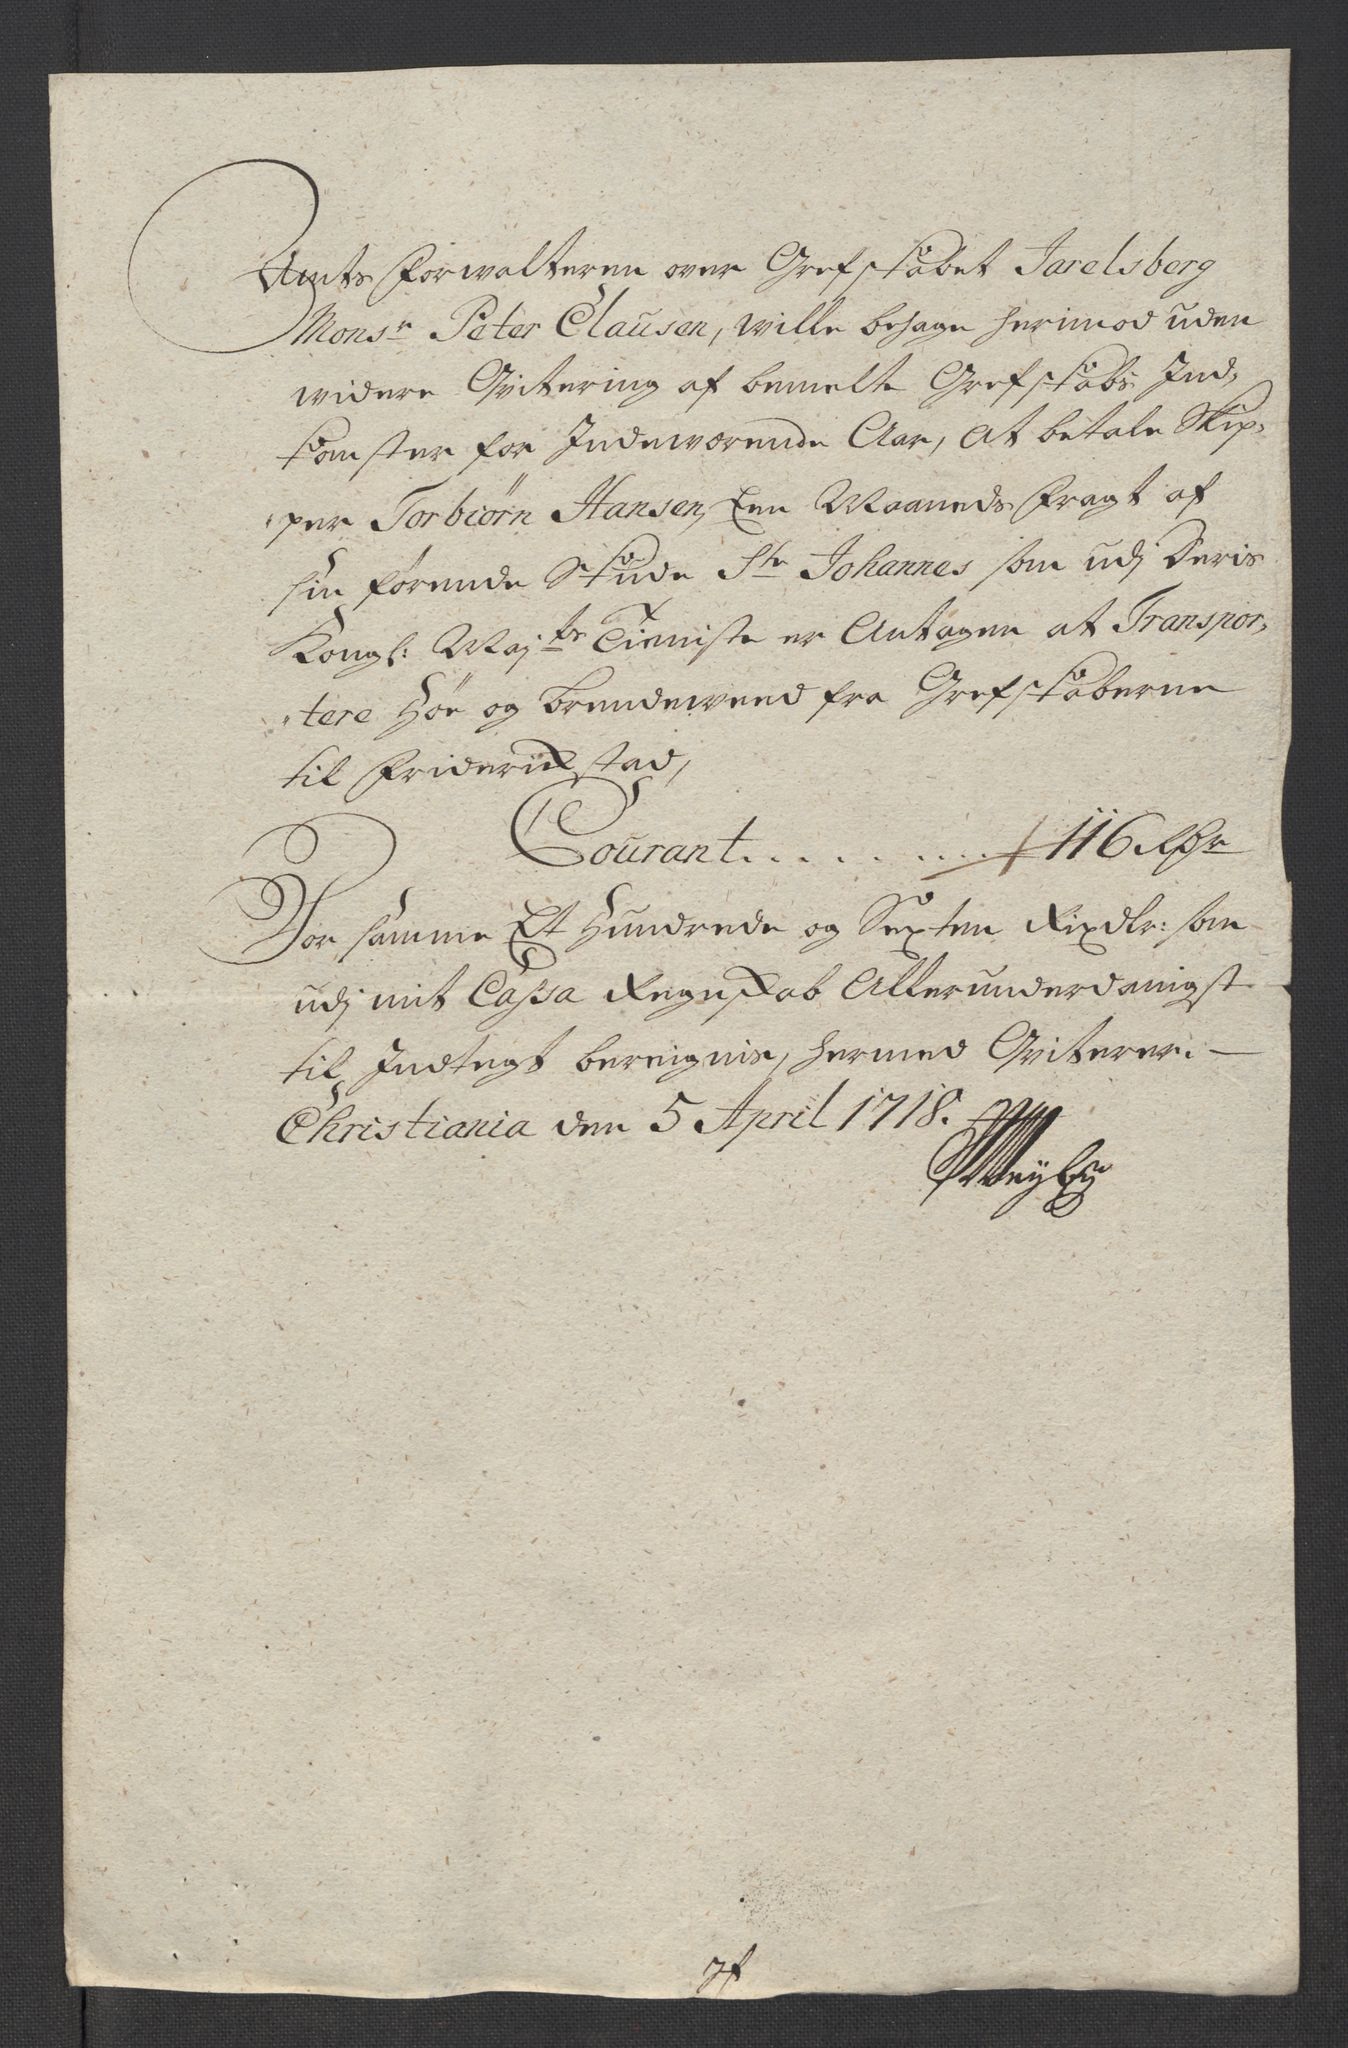 Amts Forwalteren over Grefskabet Jarelsberg
Monsr Peter Clausen, wille behage herimod uden
widere Qvitering af bemelte Grefskabs Ind,
komster for Indewærende Aar, at betale Skip,
per Torbiörn Hansen, Een Maaneds Fragt af
sin förende Skude Ste Johannes som udj Deris
Kongl: Majts Tieniste er Antagen at Transpor,
tere Höe og Brendeweed fra Grefskaberne
til Friderichstad,
Courant . . . . . . . . 116 Rdr
For samme Et Hundrede og Sexten Rixdlr: som
udj mit Cassa Regnskab Allerunderdanigst
til Indtegt bereignis, hermed Qviterer. —
Christiania den 5 April 1718.